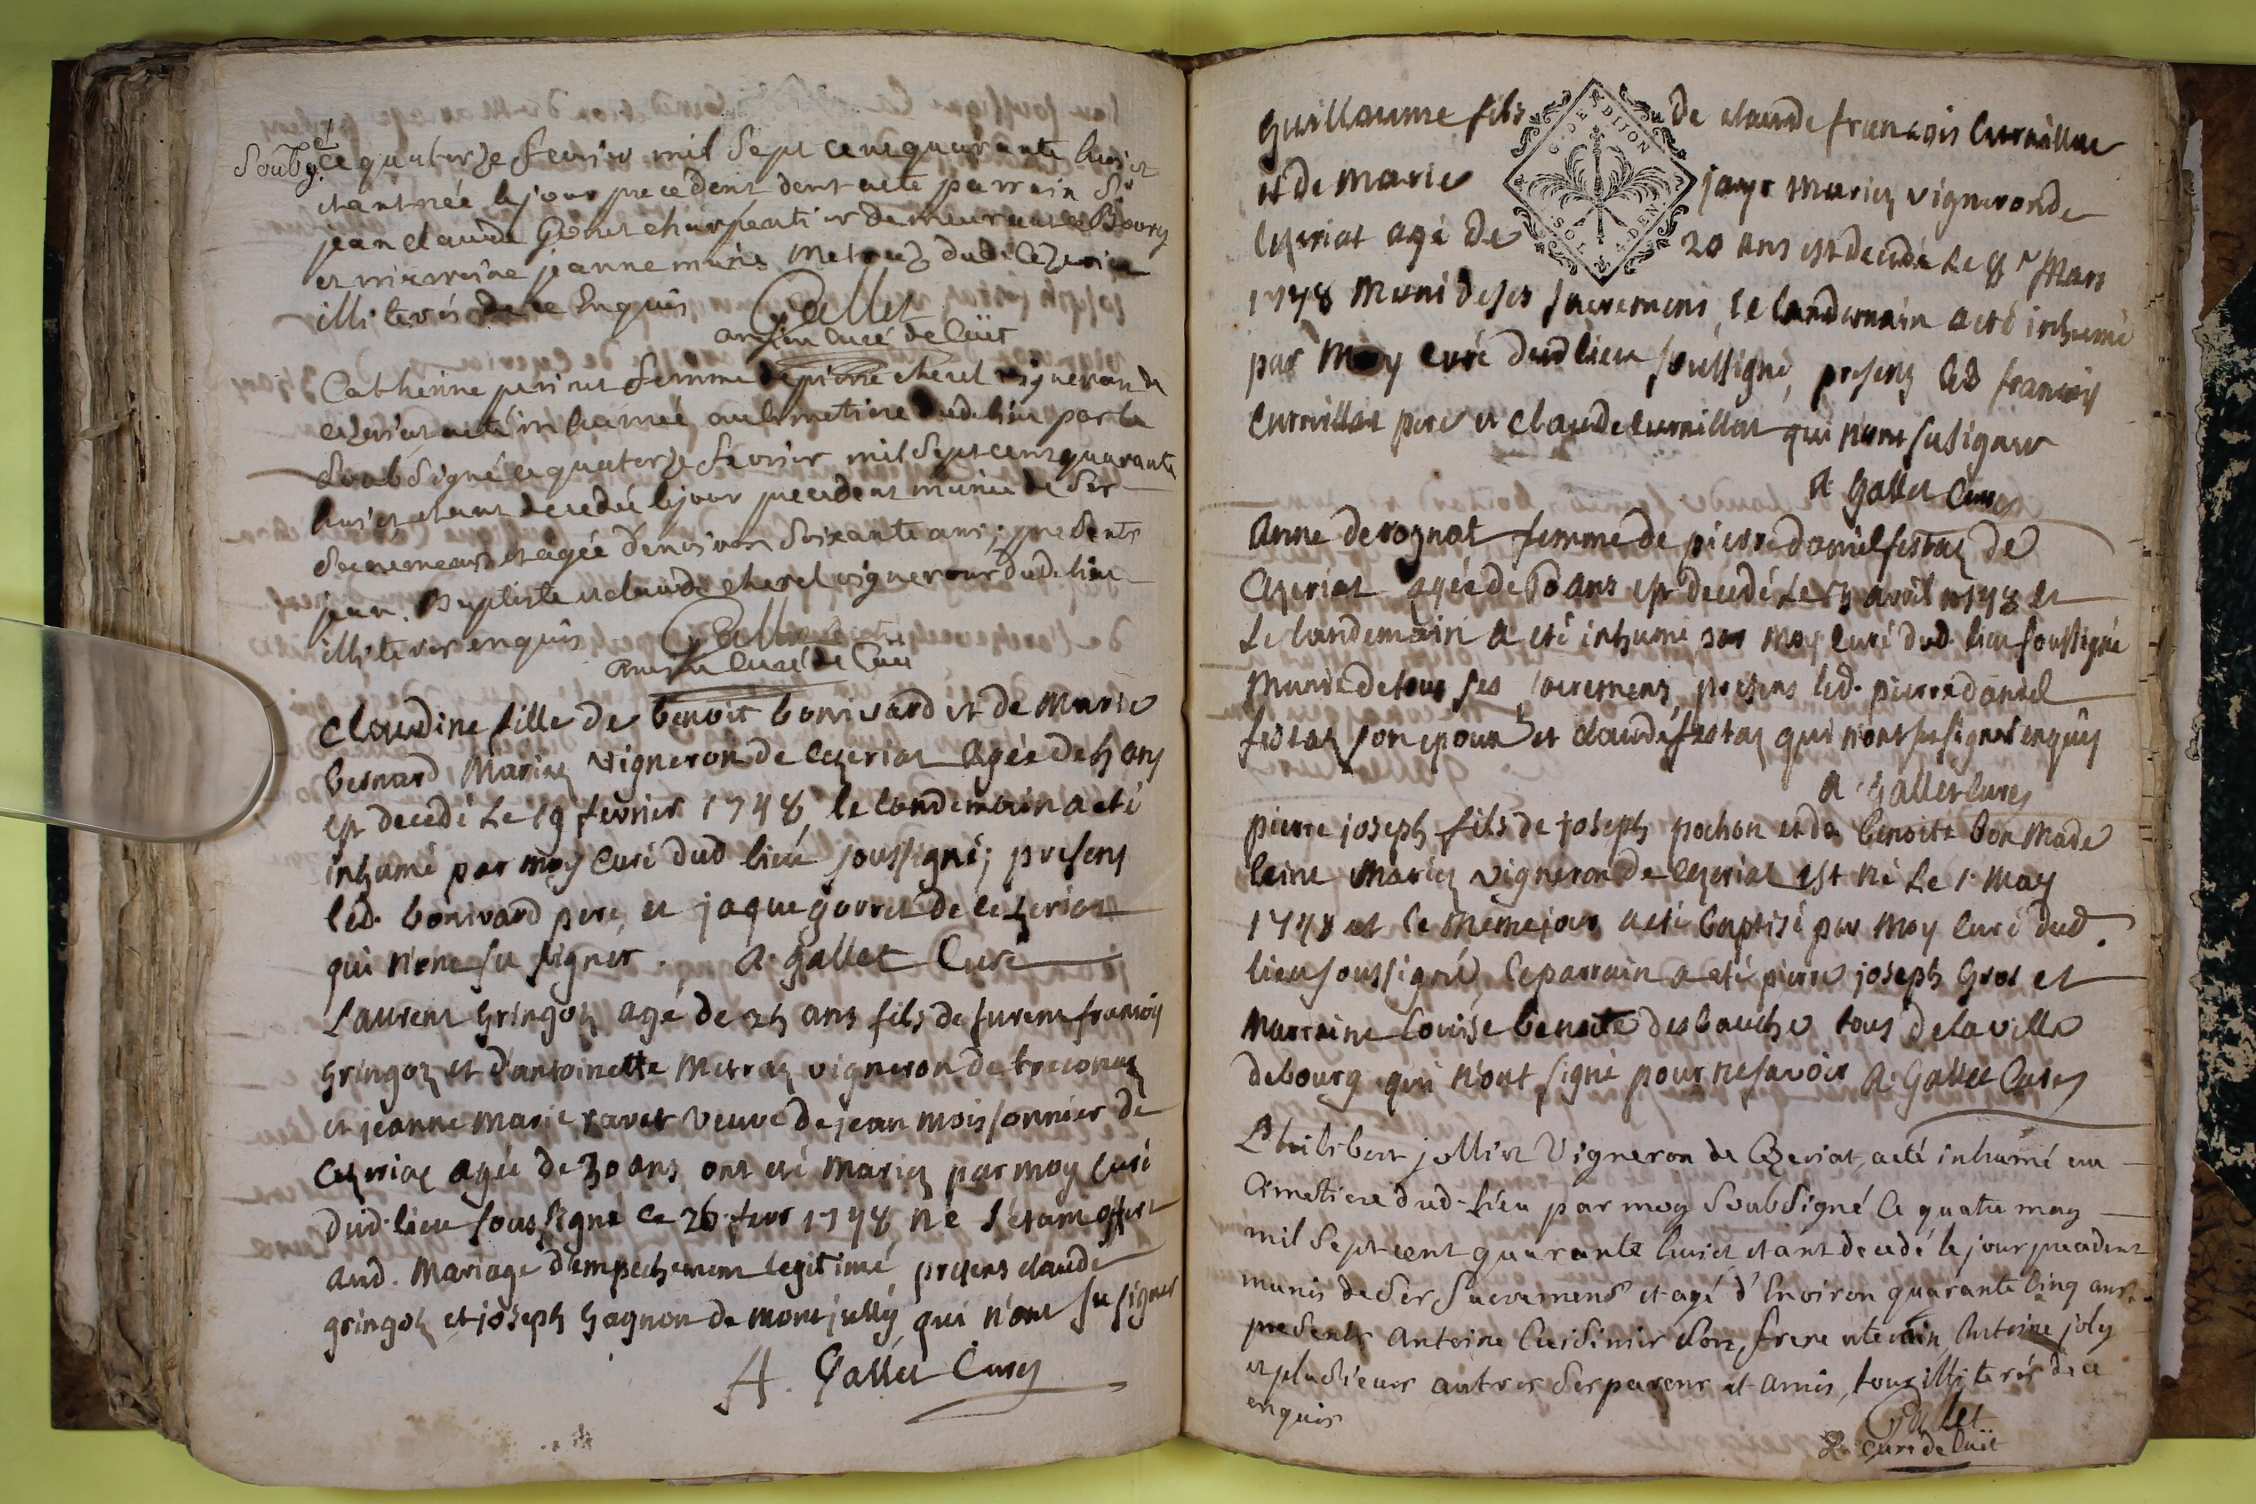 Soubg.é ce quatorze fevrier mil sept cent quarante huict
etant née le jour precedent dont a eté parrain Sr
jean claude Gonet charpentier demeurant a Bourg
et mareine jeanne marie Metraz dud. Cezeriat
illiterés de ce Enquis Gallet
ancien curé de Cuit
Catherine perinet femme de pierre cheret vigneron de
cezeriat a eté inhumée au cimetiere dud lieu par le
Soubsigné ce quatorze fevrier mil sept cent quarante
huict etant decedée le jour precedent munie de ses
Sacremens et agée d'environ soixante ans; presents
jean Baptiste et claude cheret vignerons dud. lieu
illiterés enquis Gallet
ancien curé de Cuit
Claudine fille de benoit bonivard et de Marie
bernard Mariez vigneron de cezeriat agée de 5 ans
est decedé Le 19 fevrier 1748 le landemain a eté
inhumé par moy Curé dud lieu soussigné; presens
led. bonivard pere, et jaque gorret de cezeriat
qui n'ont su signer. A. Gallet Curé
Laurent Gringoz agé de 25 ans fils de furent francois
Gringoz et d'antoinette Metraz vigneron de treconaz
et jeanne Marie ravet veuve de jean moissonnier de
Cezeriat agée de 30 ans ont eté Mariez par moy curé
dud. lieu soussigné ce 26 fevr 1748 ne s'etant offert
aud. Mariage d'empechement legitime, presens claude
gringoz et joseph gagnon de montjully qui n'ont su signer
A. Gallet Curez
Guillaume fils de claude francois Curnillon
et de marie jayr Mariez vigneron de
Cezeriat agé de 20 ans est decedé Le 8r Mars
G. DE DIJON
SOL. DEN.
1748 Muni de ses sacremens, le landemain a eté inhumé
par Moy curé dud lieu soussigné, presens led francois
Curnillon pere et claude curnillon qui n'ont su signer
A Gallet Curez
Anne derognat femme de pierre daniel festaz de
Cezeriat agée de 60 ans est decedé Le 5 avril 1748 et
Le landemain a eté inhumé par moy curé dud. lieu soussigné
Munie de tous ses sacremens, presens led. pierre daniel
festaz son epoux et claude festaz qui n'ont su signer enquis
A Gallet Curez
pierre joseph fils de joseph pochon et de benoite bon Made
leine Mariez vigneron de Cezeriat est né Le 1. May
1748 et le même jour a eté baptisé par moy curé dud.
lieu soussigné, le parrain a eté pierre joseph Gros et
Marraine Louise benoite desbauche tous de la ville
de bourg qui n'ont signé pour ne savoir A. Gallet Curez
Philibert jollier Vigneron de Cezeriat a eté inhumé au
Cimetiere dud. lieu par moy Soubsigné ce quatre may
mil sept cent quarante huict etant decedé le jour precedent
munis de ses Sacremens et agé d'Environ quarante cinq ans.
presents Antoine Cuisinier son frere uterin, Antoine joly
et plusieurs autres ses parens et amis, tous illiterés de ce
enquis
Gallet
A. curé de Cuit